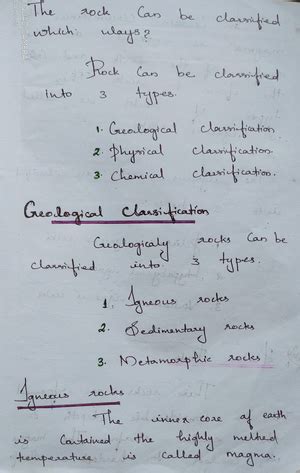 The rock Can be classified
which ways?
Rock Can be classified
into 3 types.
1. Geological classification.
2. Physical classification.
3. Chemical classification.
Geological Classification
Geologicaly rocks Can be
classified into 3 types.
1. Igneous rocks
2. Sedimentary rocks
3. Metamorphic rocks
Igneous rocks
The inner core of earth
is Contained the highly melted
temperature is called magma.